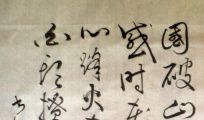 国破山
感时花
心烽火
白头搔